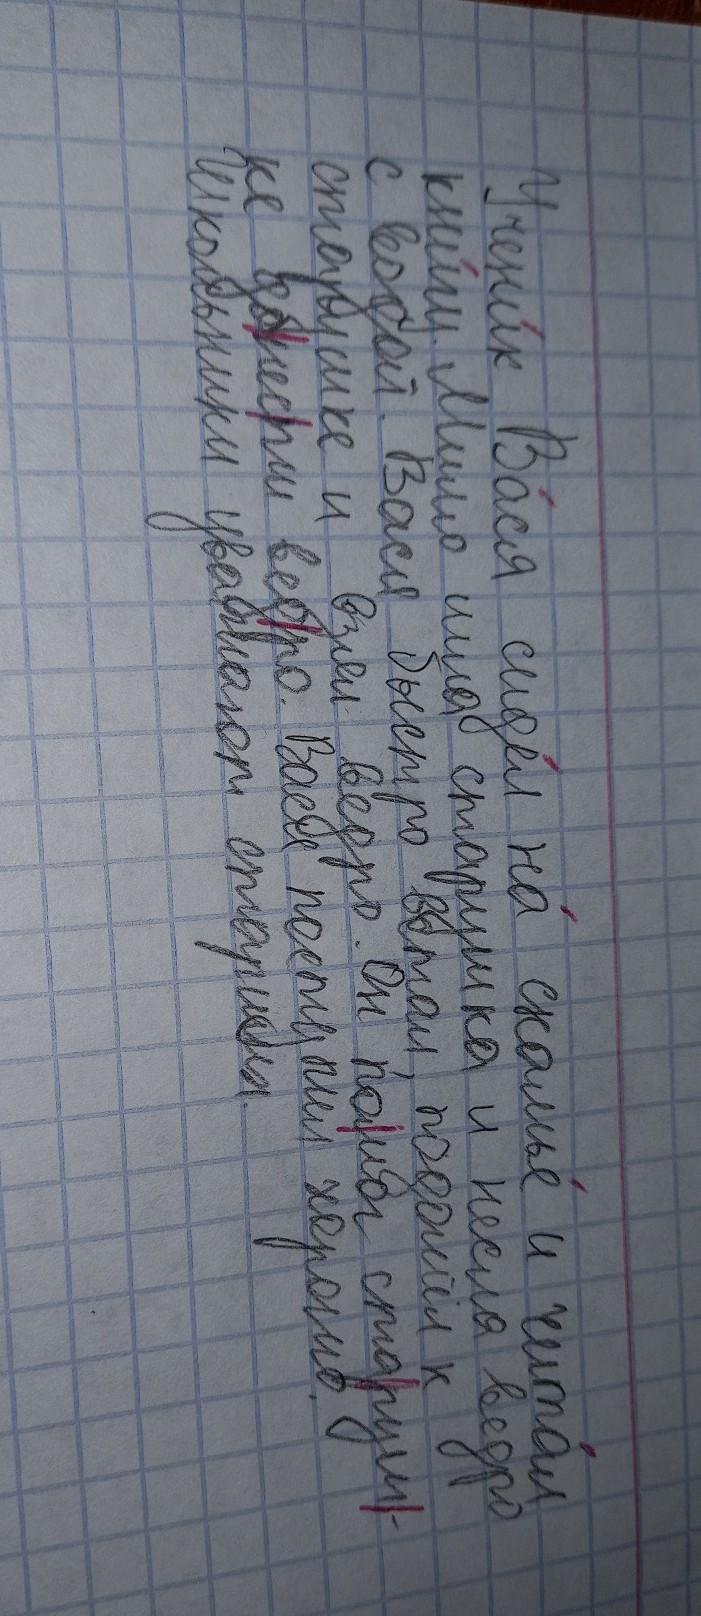 Ученик Вася сидел на скамье и читал
книги. Мимо шла старушка и несля ведро
с водой. Вася быстро встал, подошёл к
старушке и взял ведро. Он помог старуш-
ке донести ведро. Вася поступил хорошо.
Школьники уважают стариков.